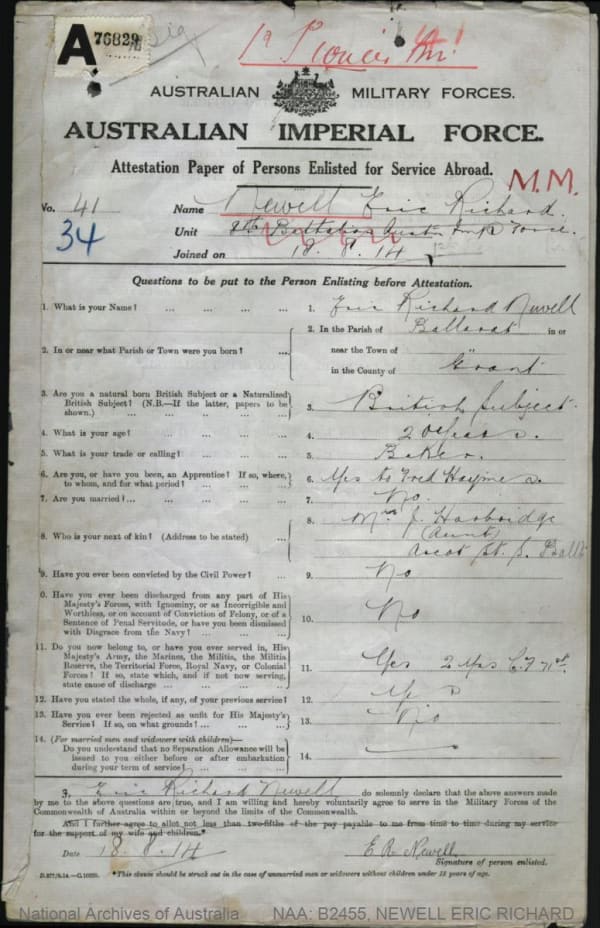 A 76829
1st Pioneer Bn.
AUSTRALIAN MILITARY FORCES.
AUSTRALIAN IMPERIAL FORCE.
Attestation Paper of Persons Enlisted for Service Abroad.
M.M.
No. 41 Name Newell Eric Richard.
34 Unit 8th Battalion Aust. Imp. Force.
Joined on 18.8.14
Questions to be put to the Person Enlisting before Attestation.
1. What is your Name? ... ... ... ... 1. Eric Richard Newell
2. In or near what Parish or Town were you born? ... 2. In the Parish of Ballarat in or
near the Town of
in the County of Grant
3. Are you a natural born British Subject or a Naturalized
British Subject? (N.B.—If the latter, papers to be
shown.) ... ... ... ... 3. British Subject.
4. What is your age? ... ... ... ... 4. 20 years.
5. What is your trade or calling? ... ... ... 5. Baker.
6. Are you, or have you been, an Apprentice? If so, where,
to whom, and for what period? ... ... ... 6. Yes to Fred Haymes.
7. Are you married? ... ... ... ... 7. No.
8. Who is your next of kin? (Address to be stated) ... 8. Mrs J. Harbridge
(Aunt)
Ascot St. S. Ballt
9. Have you ever been convicted by the Civil Power? ... 9. No
0. Have you ever been discharged from any part of His
Majesty's Forces, with Ignominy, or as Incorrigible and
Worthless, or on account of Conviction of Felony, or of a
Sentence of Penal Servitude, or have you been dismissed
with Disgrace from the Navy? ... ... ... 10. No
11. Do you now belong to, or have you ever served in, His
Majesty's Army, the Marines, the Militia, the Militia
Reserve, the Territorial Force, Royal Navy, or Colonial
Forces? If so, state which, and if not now serving,
state cause of discharge ... ... ... ... 11. Yes 2 yrs C.F. 71st.
12. Have you stated the whole, if any, of your previous service? 12. Yes
13. Have you ever been rejected as unfit for His Majesty's
Service? If so, on what grounds? ... ... ... 13. No
14. (For married men and widowers with children)—
Do you understand that no Separation Allowance will be
issued to you either before or after embarkation
during your term of service? ... ... ... 14. —
I, Eric Richard Newell do solemnly declare that the above answers made
by me to the above questions are true, and I am willing and hereby voluntarily agree to serve in the Military Forces of the
Commonwealth of Australia within or beyond the limits of the Commonwealth.
And I further agree to allot not less than two-fifths of the pay payable to me from time to time during my service
for the support of my wife and children.*
Date 18.8.14 E R Newell.
Signature of person enlisted.
*This clause should be struck out in the case of unmarried men or widowers without children under 18 years of age.
National Archives of Australia NAA: B2455, NEWELL ERIC RICHARD